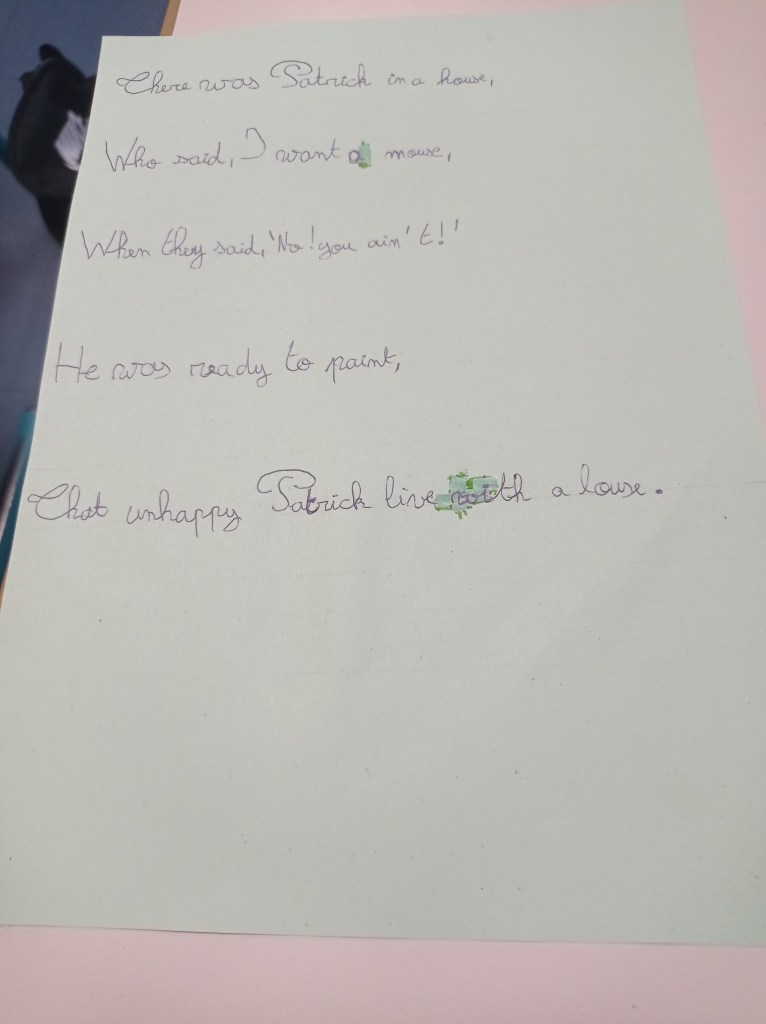 There was Patrick in a house,
Who said, I want a mouse,
When they said, 'No! you ain't!'
He was ready to paint,
That unhappy Patrick live with a louse.